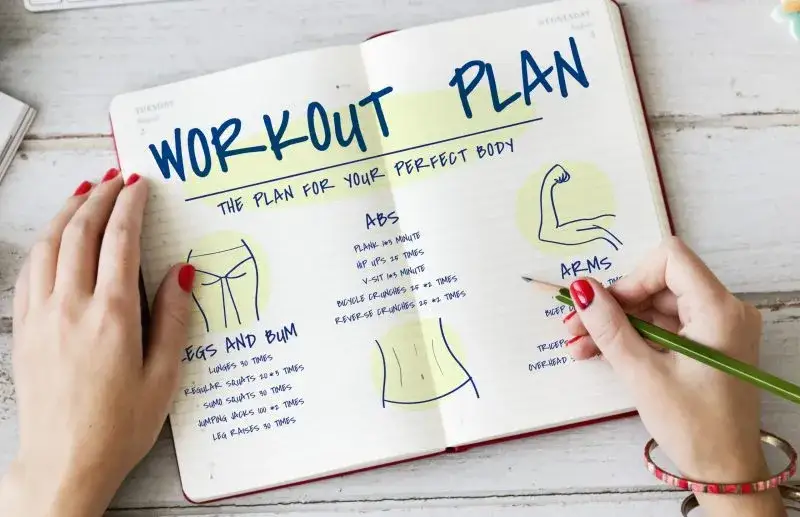 TUESDAY
WEDNESDAY
WORKOUT PLAN
THE PLAN FOR YOUR PERFECT BODY
LEGS AND BUM
LUNGES 30 TIMES
REGULAR SQUATS 20*3 TIMES
SUMO SQUATS 30 TIMES
JUMPING JACKS 100 *2 TIMES
LEG RAISES 30 TIMES
ABS
PLANK 1*3 MINUTE
HIP UPS 25 TIMES
V-SIT 1*3 MINUTE
BICYCLE CRUNCHES 25 *2 TIMES
REVERSE CRUNCHES 25 *2 TIMES
ARMS
BICEP
TRICEPS
OVERHEAD